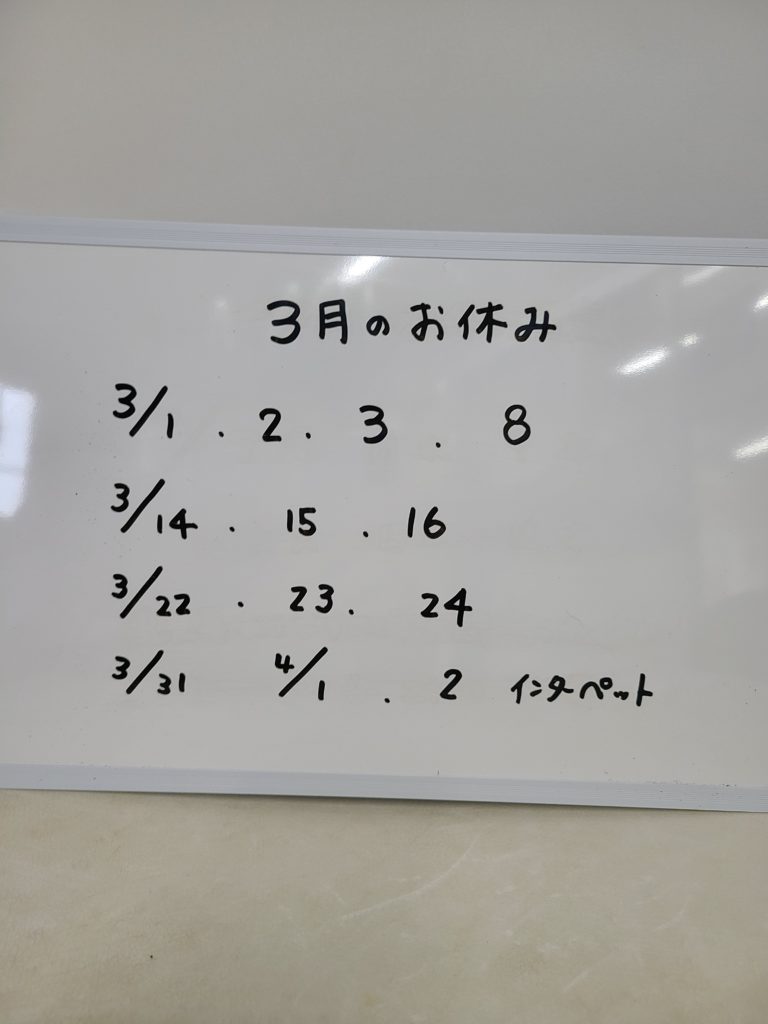 3月のお休み
3/1 . 2 . 3 . 8
3/14 . 15 . 16
3/22 . 23 . 24
3/31 4/1 . 2 インターペット